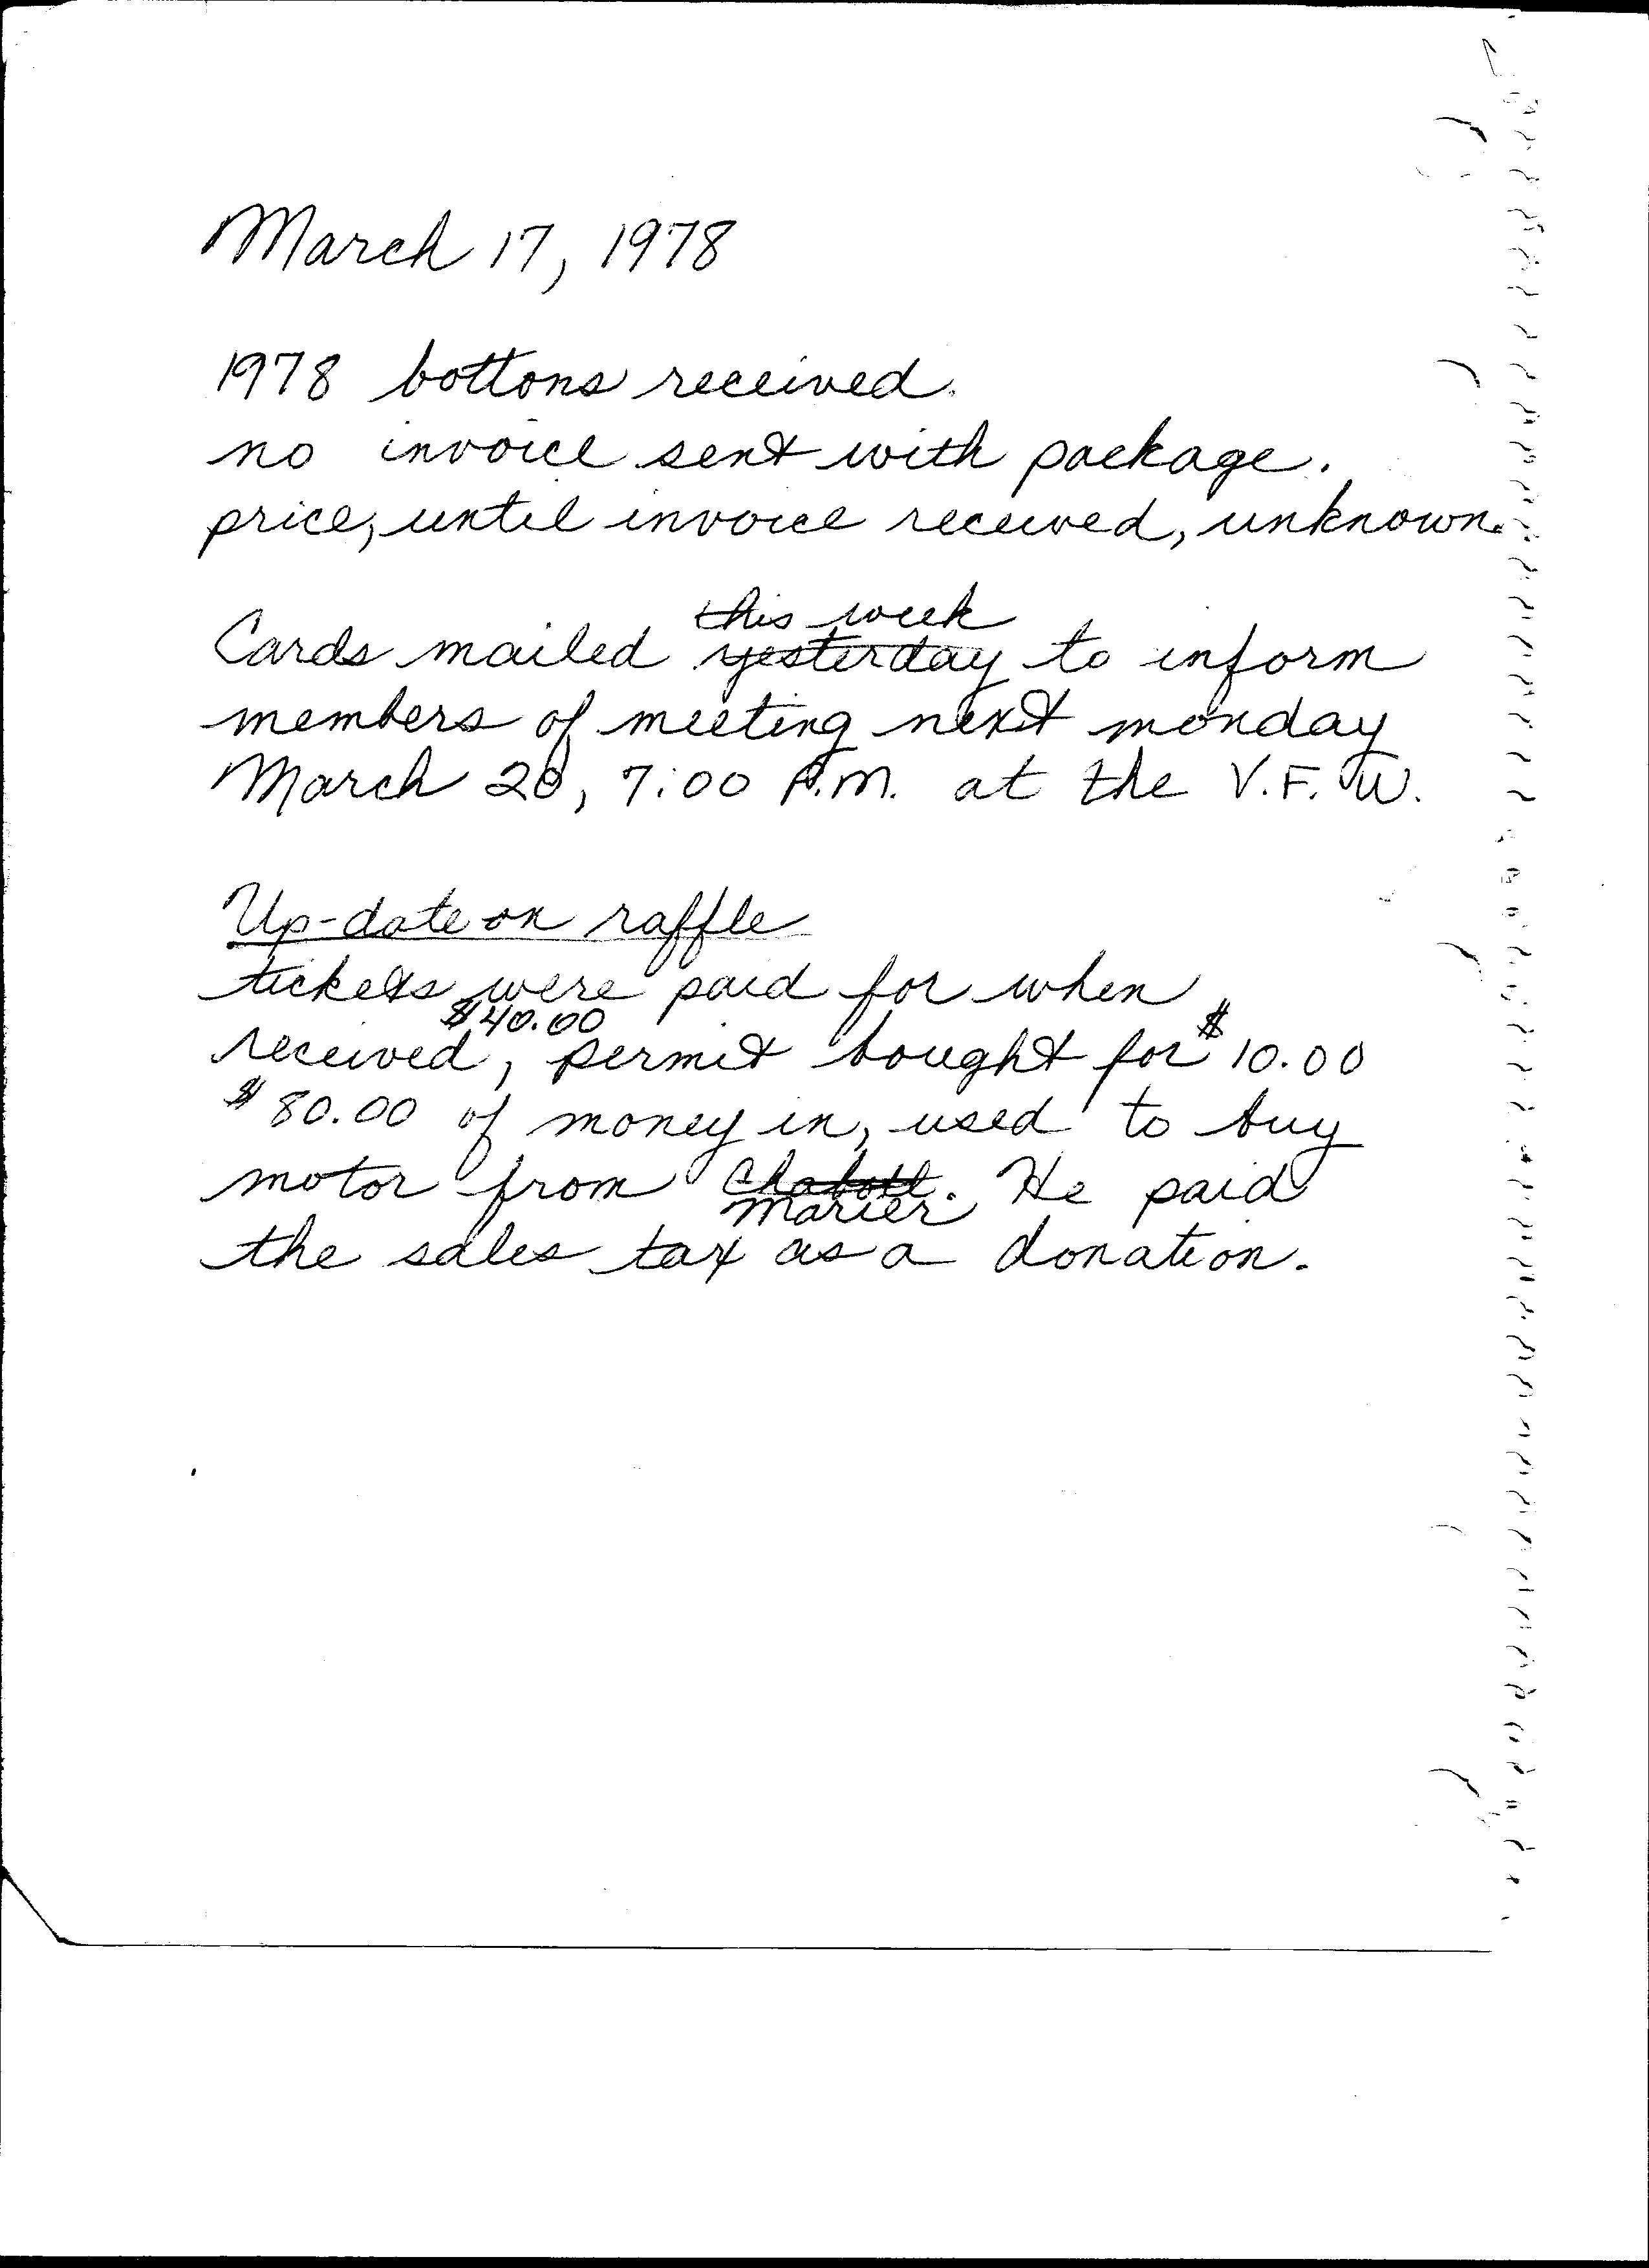 March 17, 1978
1978 bottons received.
no invoice sent with package.
price, until invoice received, unknown.
this week
Cards mailed yesterday to inform
members of meeting next monday
March 20, 7:00 P.M. at the V.F.W.
Up-date on raffle
tickets were paid for when
$40.00
received, permit bought for $10.00
$80.00 of money in, used to buy
motor from Chabott. He paid
Marier
the sales tax as a donation.